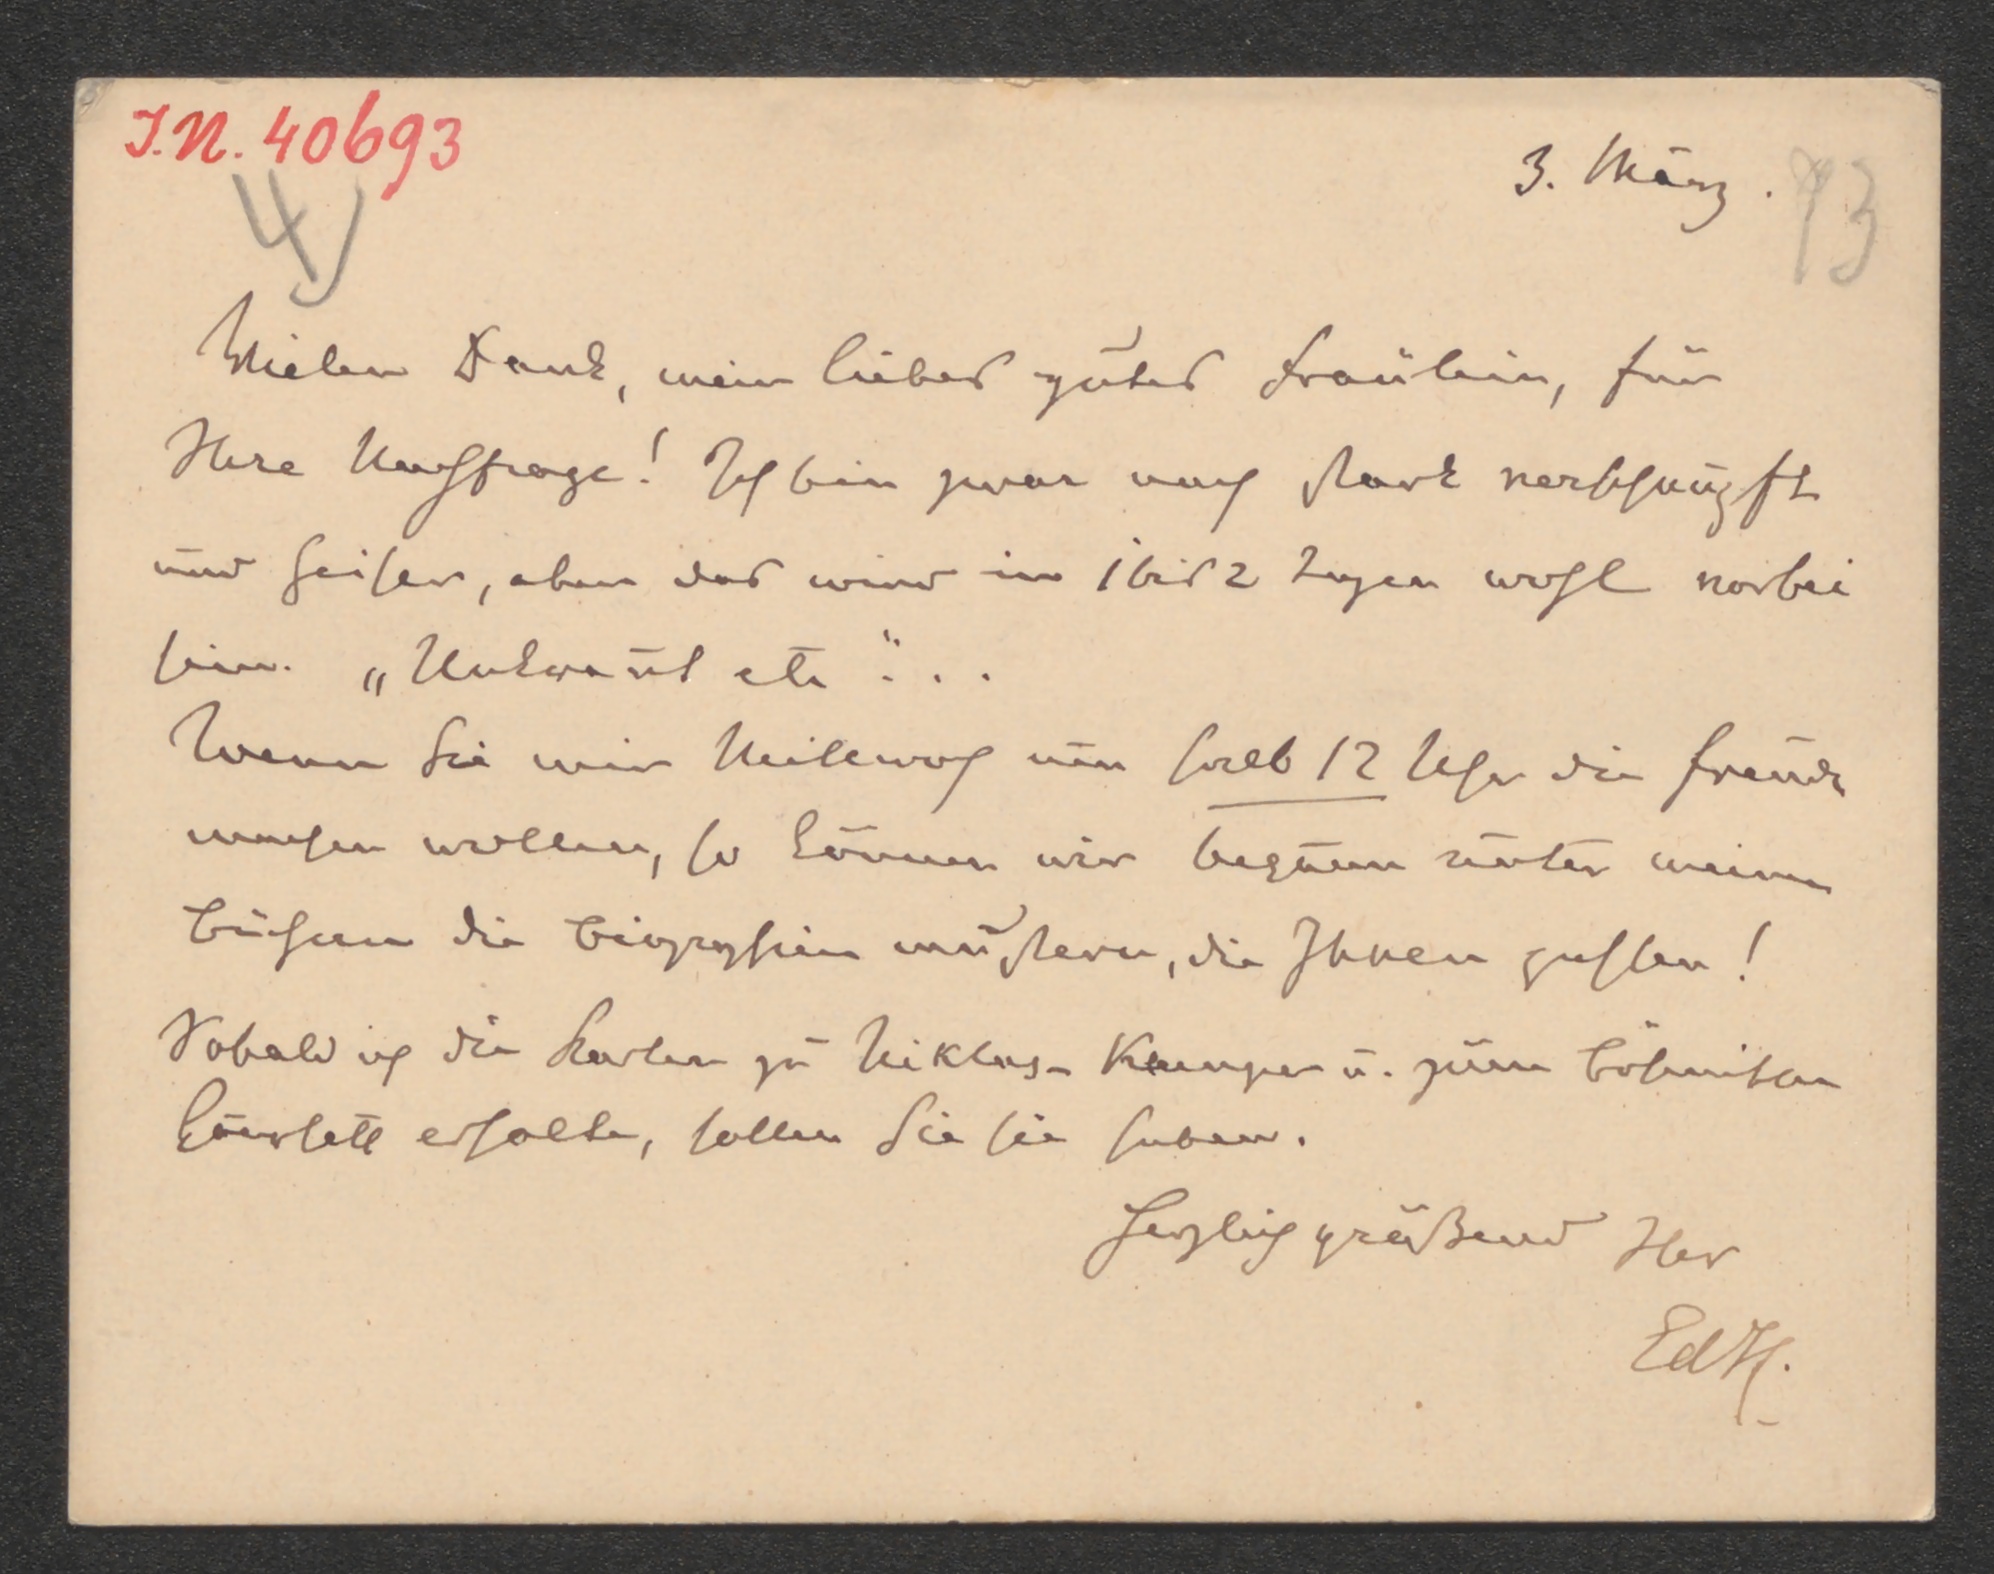 J.N. 40693
4)
3. März. 93
Vielen Dank, mein liebes gutes Fräulein, für
Ihre Nachfrage! Ich bin zwar noch stark verschnupft
und heiser, aber das wird in 1 bis 2 Tagen wohl vorbei
sein. „Unkraut etc“...
Wenn Sie mir Mittwoch um halb 12 Uhr die Freude
machen wollen, so können wir bequem unter meinen
Büchern die Biographien mustern, die Ihnen gefallen!
Sobald ich die Karten zu Niklas-Kempner u. zum böhmischen
Quartett erhalte, sollen Sie sie haben.
Herzlich grüßend Ihr
EdH.